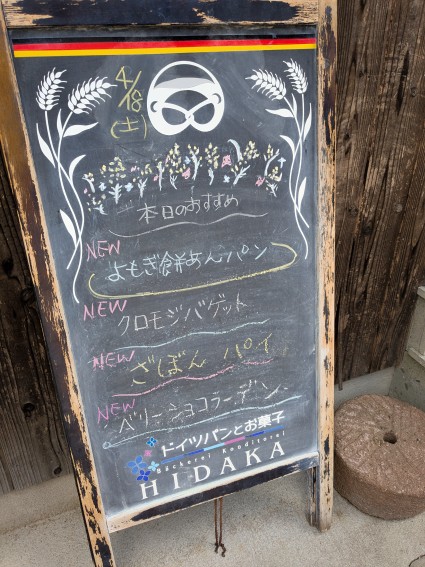 4/18
(土)
本日のおすすめ
NEW
よもぎ餅あんパン
NEW
クロモジバゲット
NEW
ざぼんパイ
NEW
ベリーショコラーデン
ドイツパンとお菓子
Bäckerei Konditorei
HIDAKA